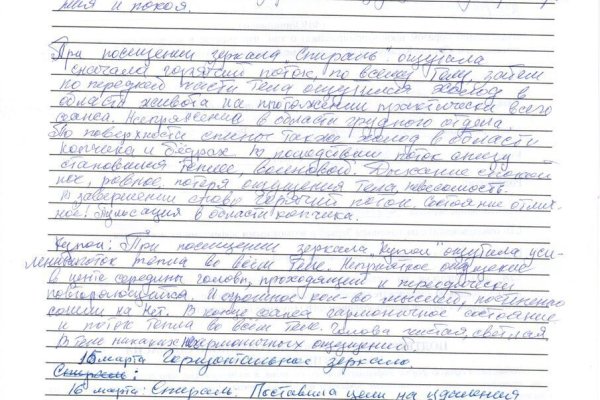 ния и покоя.
При посещении зеркала "Спираль" ощутила
сначала горячий поток, по всему телу, затем
по передней части тела ощущался холод в
области живота на протяжении практически всего
сеанса. Напряжение в области грудного отдела.
По поверхности спины также холод в области
копчика и бедрах. В последствии поток снизу
становился теплее, волновой. Дыхание спокой
ное, ровное, потеря ощущения тела, невесомость.
В завершении снова горячий поток. Состояние отлич-
ное. Пульсация в области копчика.
Купол: При посещении зеркала "Купол" ощутила уси-
ление поток тепла во всем теле. Неприятное ощущение
в центе середины головы, проходящий и переодически
повторяющийся. И огромное кол-во мыслей, постепенно
сошли на нет. В конце сеанса гармоничное состояние
и поток тепла во всем теле. Голова чистая, светлая,
В теле никаких негармоничных ощущений.
15 марта Горизонтальное зеркало.
Спираль:
16 марта: Спираль. Поставила цели на удаления